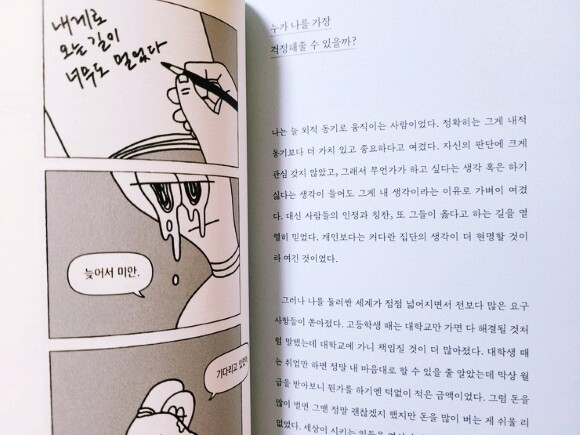 내게로
오는 길이
너무도 멀었다
늦어서 미안.
기다리고 있었어.
누가 나를 가장
걱정해줄 수 있을까?
나는 늘 외적 동기로 움직이는 사람이었다. 정확히는 그게 내적
동기보다 더 가치 있고 중요하다고 여겼다. 자신의 판단에 크게
관심 갖지 않았고, 그래서 무언가가 하고 싶다는 생각 혹은 하기
싫다는 생각이 들어도 그게 내 생각이라는 이유로 가벼이 여겼
다. 대신 사람들의 인정과 칭찬, 또 그들이 옳다고 하는 길을 열
렬히 믿었다. 개인보다는 커다란 집단의 생각이 더 현명할 것이
라 여긴 것이었다.
그러나 나를 둘러싼 세계가 점점 넓어지면서 전보다 많은 요구
사항들이 쏟아졌다. 고등학생 때는 대학교만 가면 다 해결될 것처
럼 말했는데 대학교에 가니 책임질 것이 더 많아졌다. 대학생 때
는 취업만 하면 정말 내 마음대로 할 수 있을 줄 알았는데 막상 월
급을 받아보니 뭔가를 하기엔 턱없이 적은 금액이었다. 그럼 돈을
많이 벌면 그땐 정말 괜찮겠지 했지만 돈을 많이 버는 게 쉬울 리
없었다. 세상이 시키는